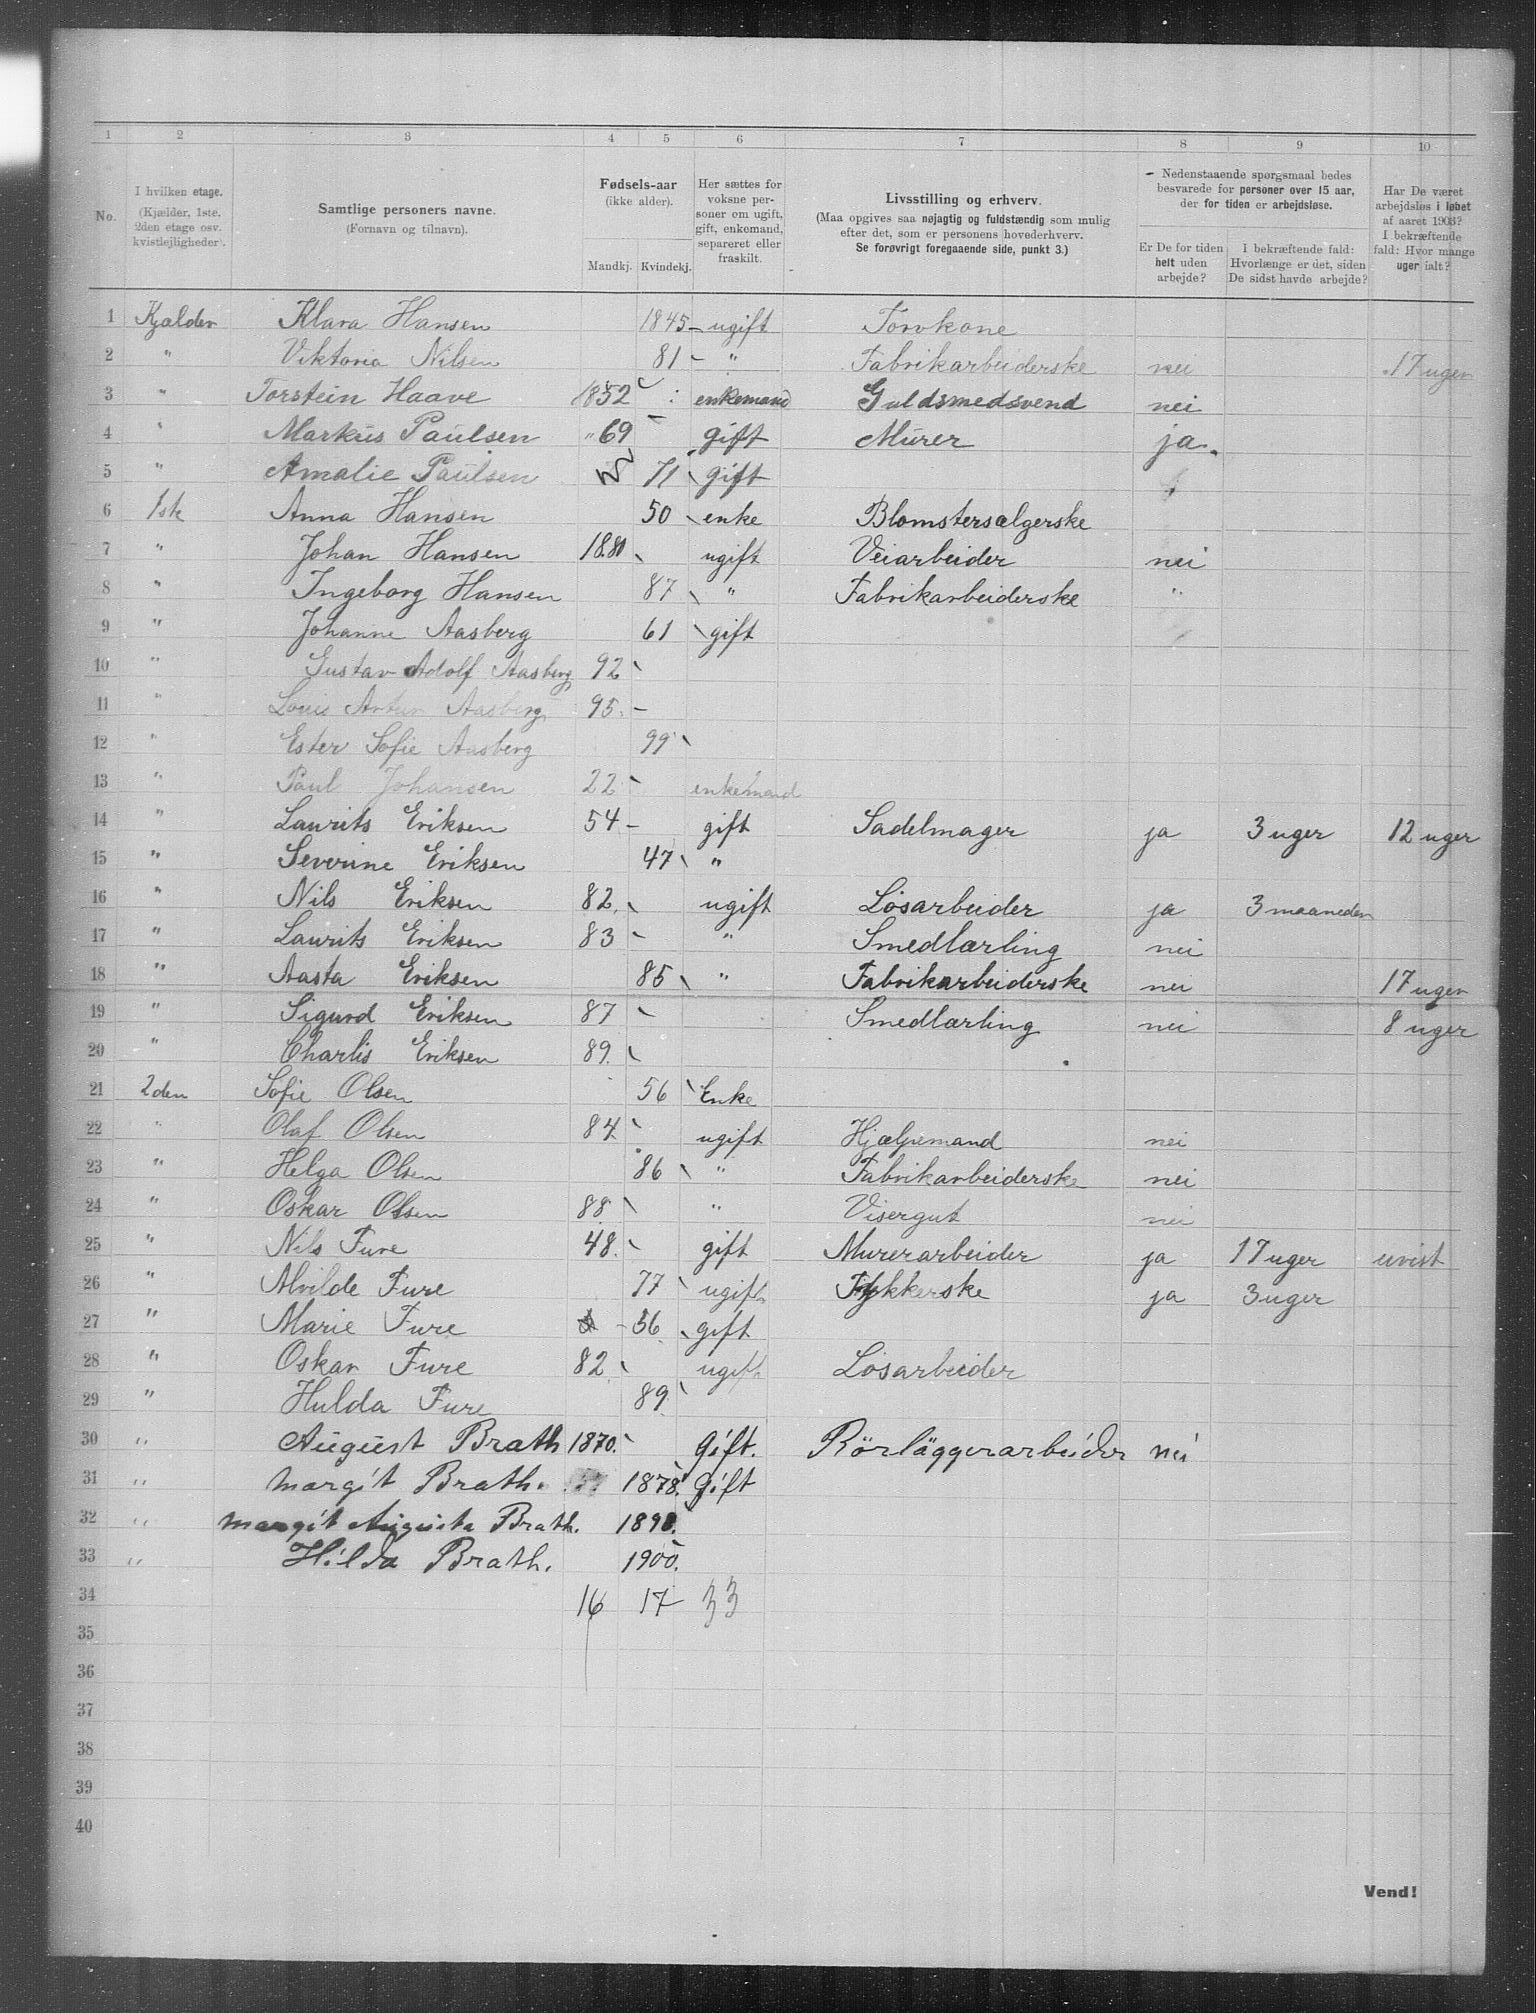 1 2 3 4 5 6 7 8 9 10
No. I hvilken etage. (Kjælder, 1ste. 2den etage osv. kvistlejligheder). Samtlige personers navne. (Fornavn og tilnavn). Fødsels-aar (ikke alder). Mandkj. Kvindekj. Her sættes for voksne personer om ugift, gift, enkemand, separeret eller fraskilt. Livsstilling og erhverv. (Maa opgives saa nøjagtig og fuldstændig som mulig efter det, som er personens hovederhverv. Se forøvrigt foregaaende side, punkt 3.) - Nedenstaaende spørgsmaal bedes besvarede for personer over 15 aar, der for tiden er arbejdsløse. Er De for tiden helt uden arbejde? I bekræftende fald: Hvorlænge er det, siden De sidst havde arbejde? Har De været arbejdsløs i løbet af aaret 1903? I bekræftende fald: Hvor mange uger ialt?
1 Kjælder Klara Hansen 1845 - ugift Torvkone
2 " Viktoria Nilsen 81 - " Fabrikarbeiderske nei 17 uger
3 " Torstein Haave 1852 enkemand Guldsmedsvend nei
4 " Markus Paulsen " 69 gift Murer ja.
5 " Amalie Paulsen 71 gift
6 1ste Anna Hansen 50 enke Blomstersælgerske
7 " Johan Hansen 1880 ugift Veiarbeider nei
8 " Ingeborg Hansen 87 " Fabrikarbeiderske "
9 " Johanne Aasberg 61 gift
10 " Gustav Adolf Aasberg 92
11 " Louis Artur Aasberg 95. -
12 " Ester Sofie Aasberg 99
13 " Paul Johansen 22 - enkemand
14 " Laurits Eriksen 54 - gift Sadelmager ja 3 uger 12 uger
15 " Severine Eriksen 47 "
16 " Nils Eriksen 82 ugift Løsarbeider ja 3 maaneder
17 " Laurits Eriksen 83 - " Smedlærling nei
18 " Aasta Eriksen 85 " Fabrikarbeiderske nei 17 uger
19 " Sigurd Eriksen 87 - Smedlærling nei 8 uger
20 " Charlis Eriksen 89.
21 2den Sofie Olsen 56 Enke
22 " Olaf Olsen 84 ugift Hjælpemand nei
23 " Helga Olsen 86 " Fabrikarbeiderske nei
24 " Oskar Olsen 88 " Visergut nei
25 " Nils Fure 48. gift Murerarbeider ja 17 uger uvist
26 " Alvilde Fure 77 ugift Trykkerske ja 3 uger
27 " Marie Fure - 56 gift
28 " Oskar Fure 82 ugift Løsarbeider
29 " Hulda Fure 89.
30 " August Brath 1870. Gift. Rörläggerarbeider nei
31 " Margit Brath. 1878. Gift
32 " Margit Augusta Brath. 1898.
33 " Hilda Brath. 1900.
34 16 17 33
35
36
37
38
39
40
Vend!